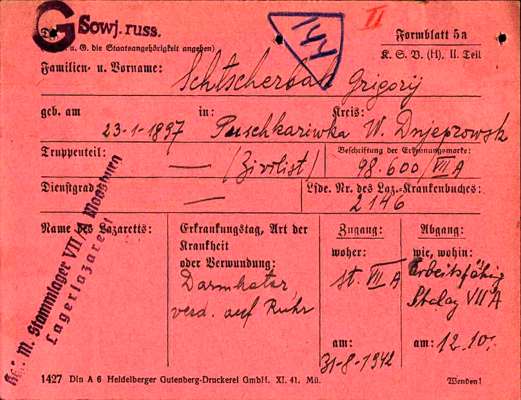 G Sowj. russ.
144
II
Formblatt 5a
u. G. die Staatsangehörigkeit angeben)
K. S. V. (H). II. Teil
Familien- u. Vorname: Schtscherbak Grigorij
geb. am 23-1-1897 in: Puschkariwka Kreis: W. Dnjeprowsk
Truppenteil: — (Zivilist)
Beschriftung der Erkennungsmarke:
98.600/VII A
Dienstgrad —
Lfde. Nr. des Laz.-Krankenbuches:
2146
Name des Lazaretts:
M. Stammlager VII A Moosburg
Lagerlazarett
Erkrankungstag, Art der
Krankheit
oder Verwundung:
Darmkatar
verd. auf Ruhr
Zugang:
woher:
st. VII A
am:
31-8-1942
Abgang:
wie, wohin:
Arbeitsfähig
Stalag VII A
am: 12.10.
1427 Din A 6 Heidelberger Gutenberg-Druckerei GmbH. XI. 41. Mü.
Wenden!